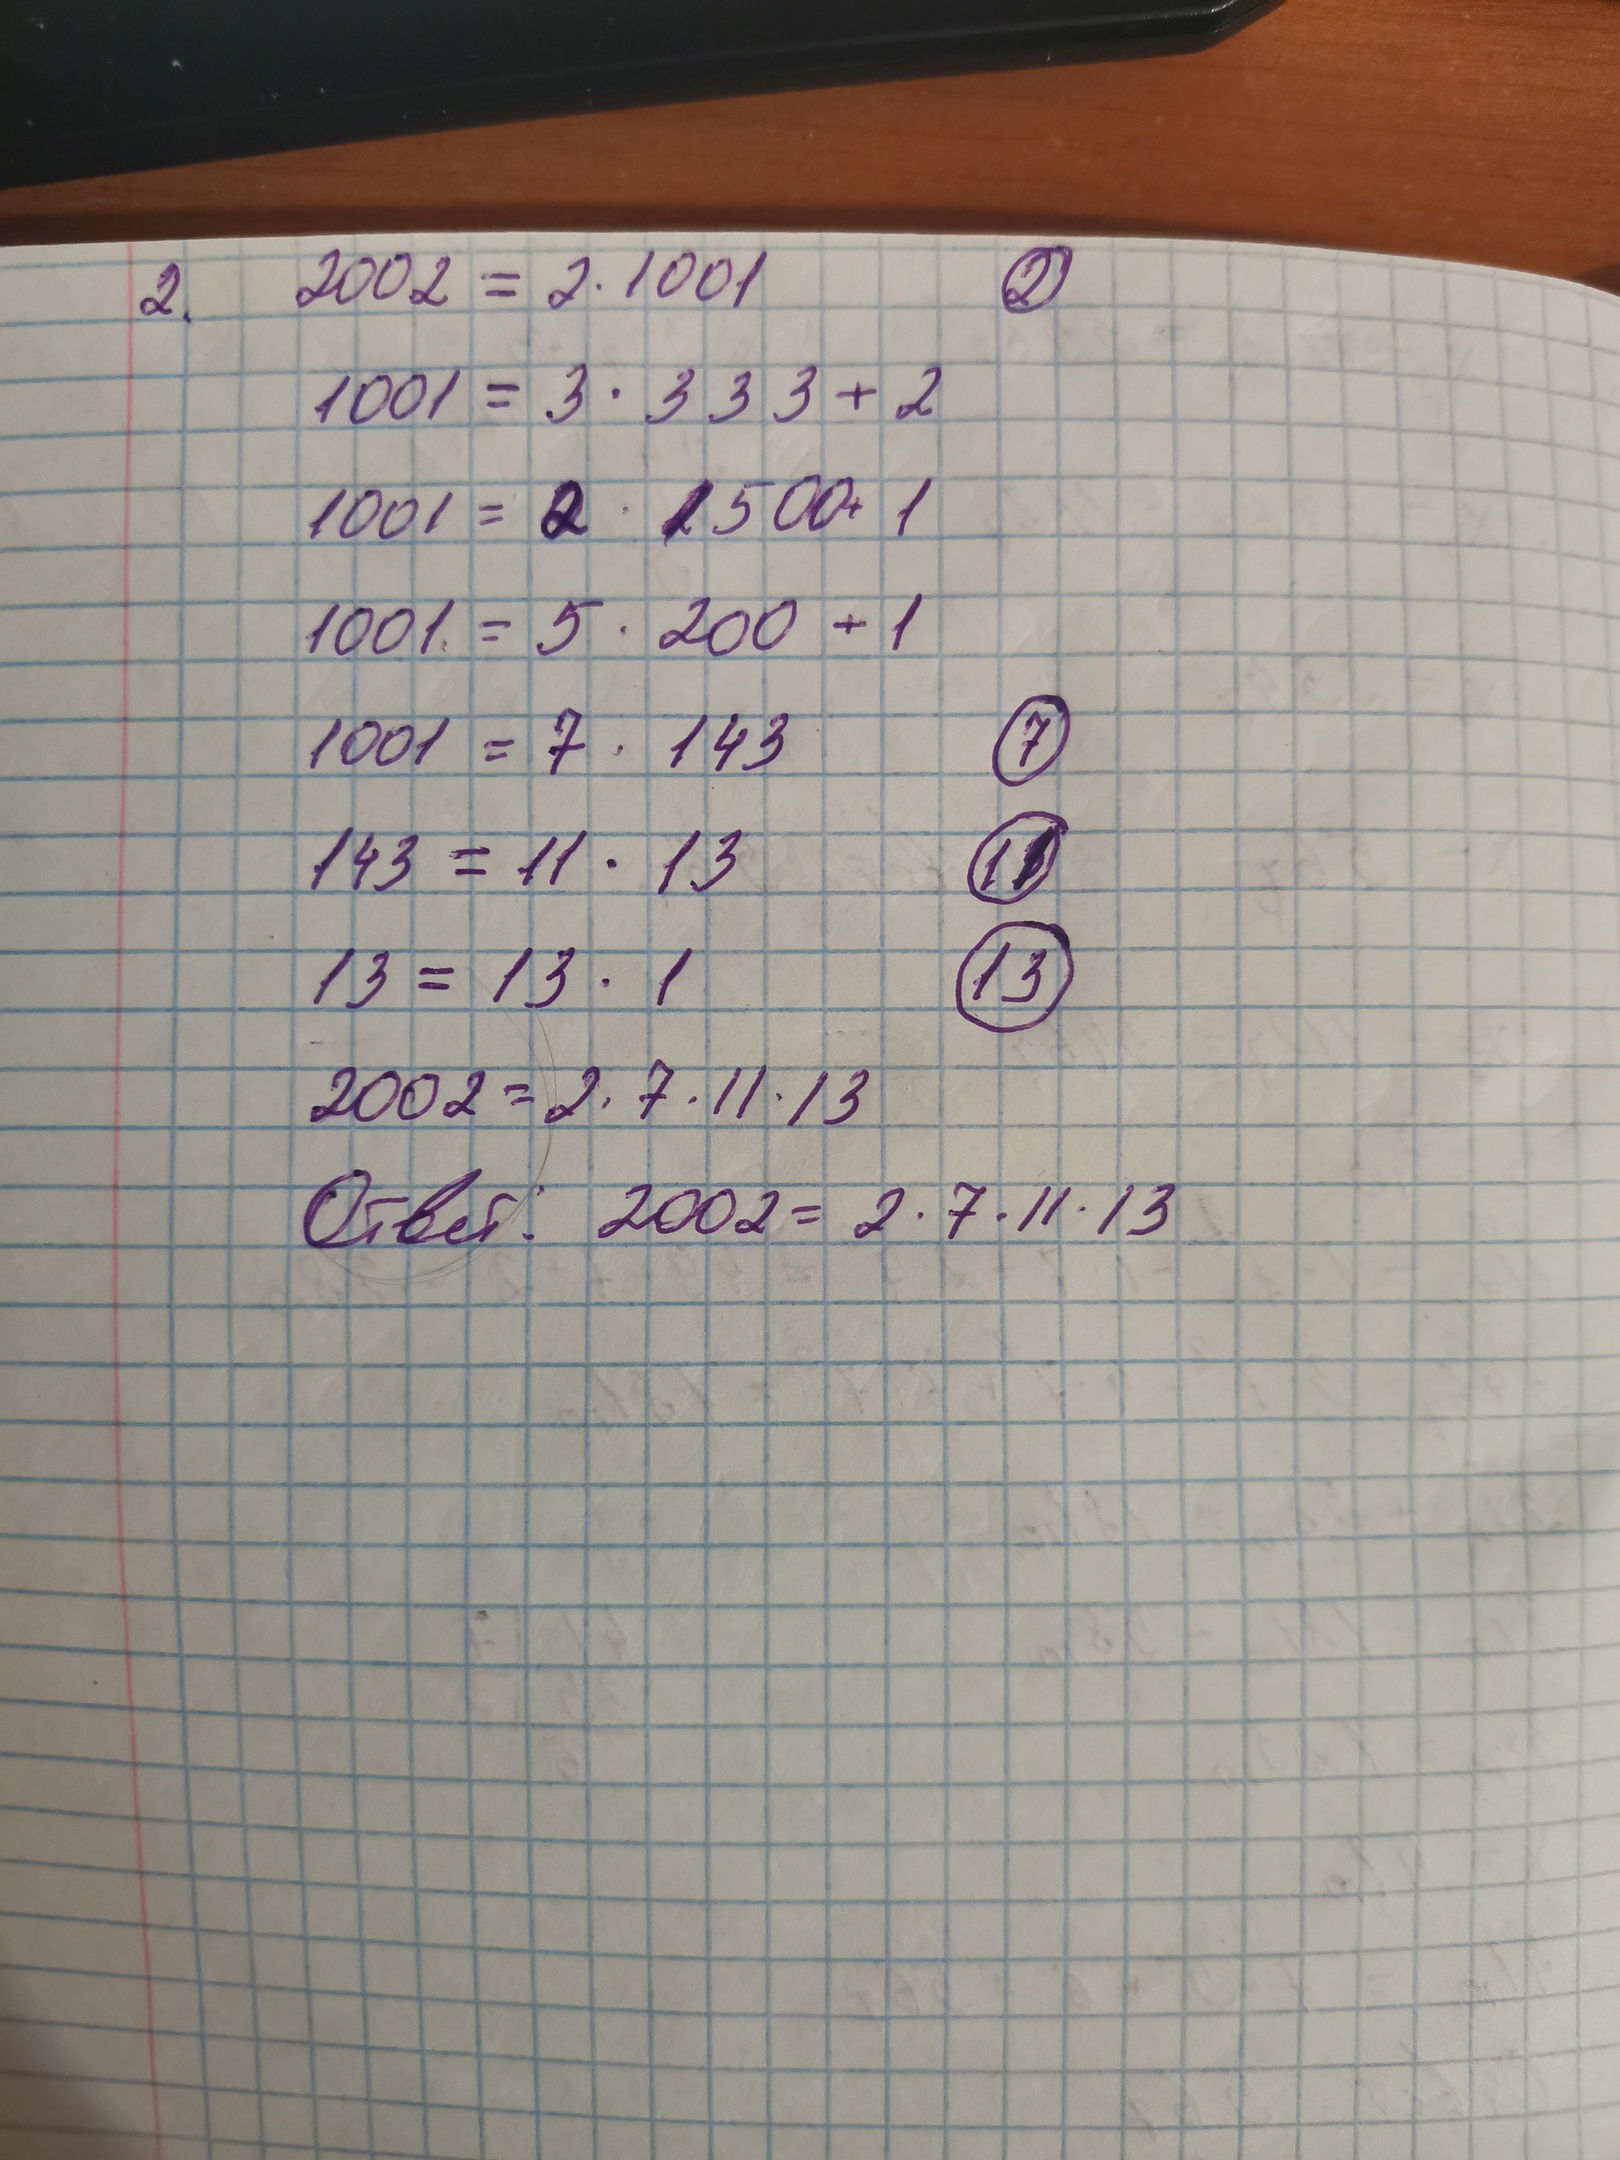 2. 2002 = 2 · 1001 2
1001 = 3 · 333 + 2
1001 = 2 · 500 + 1
1001 = 5 · 200 + 1
1001 = 7 · 143 7
143 = 11 · 13 11
13 = 13 · 1 13
2002 = 2 · 7 · 11 · 13
Ответ: 2002 = 2 · 7 · 11 · 13